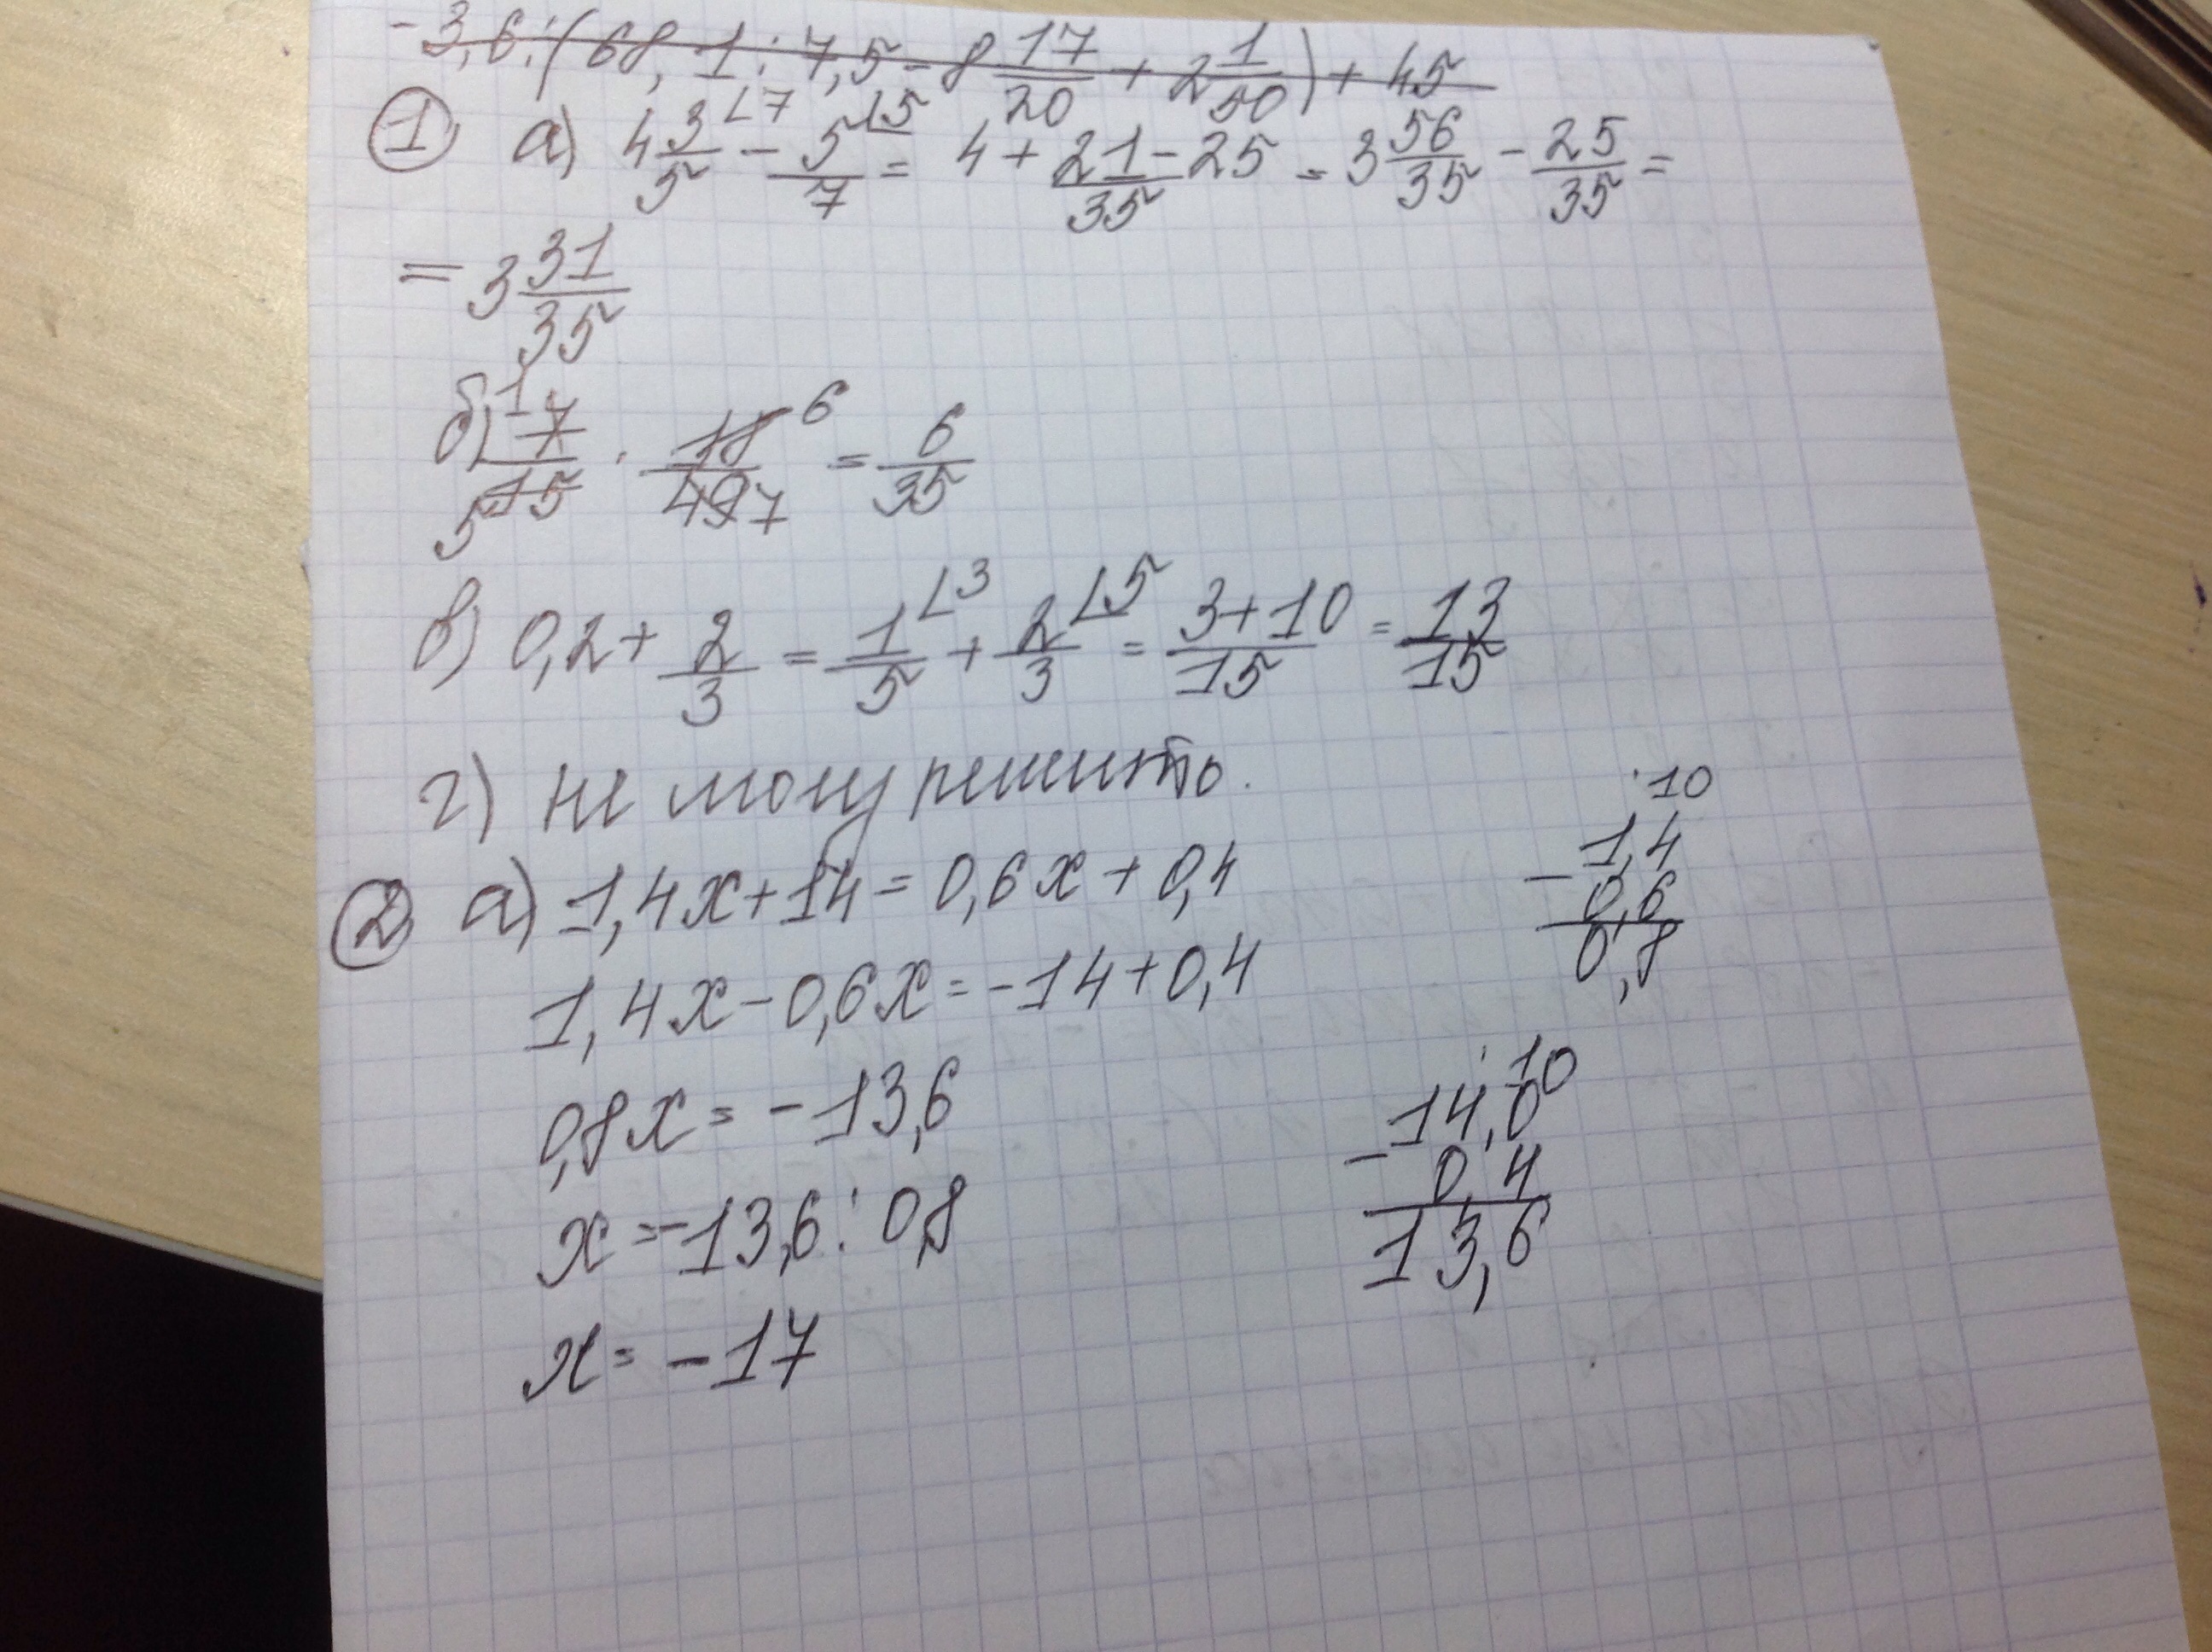 -3,6:(68,1:7,5-8 17/20+2 1/50)+45
① а) 4 3/5 ∠7 - 5/7 ∠5 = 4+ 21-25/35 = 3 56/35 - 25/35 =
= 3 31/35
б) 1 7/15 5 · 18 6/49 7 = 6/35
в) 0,2+ 2/3 = 1/5 ∠3 + 2/3 ∠5 = 3+10/15 = 13/15
г) не могу решить.
② а) 1,4x+14=0,6x+0,4
1,4x-0,6x=-14+0,4
0,8x=-13,6
x=-13,6:0,8
x=-17
10
-1,4
0,6
0,8
10
-14,0
0,4
13,6